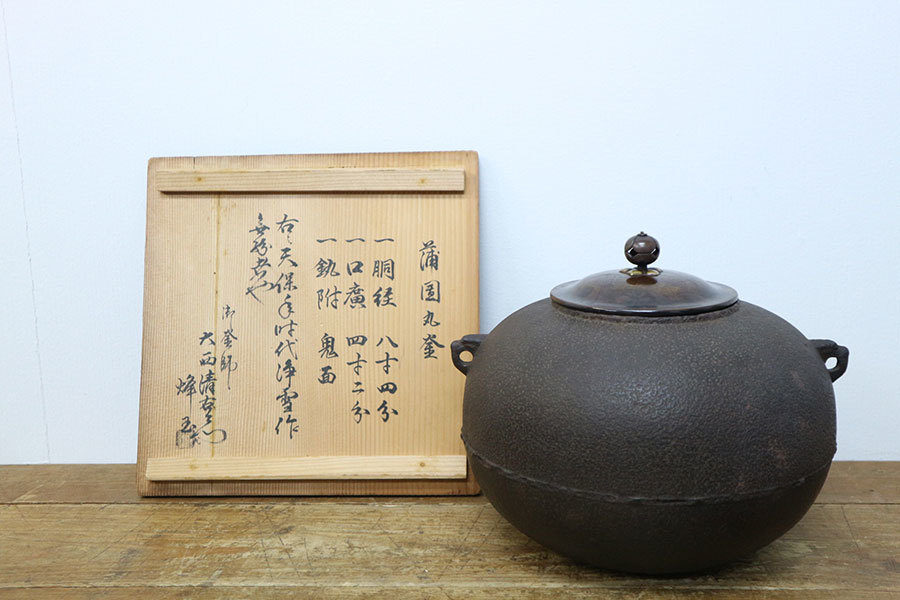 蒲団丸釜
一胴経 八寸四分
一口廣 四寸二分
一釻附 鬼面
右ハ天保年時代浄雪作
無紛者也
御釜師
大西清右衛門